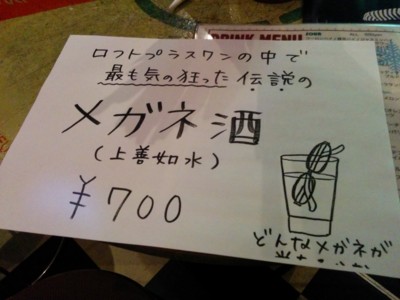 DRINK MENU
ロフトプラスワンの中で
最も気の狂った伝説の
メガネ酒
(上善如水)
¥700
どんなメガネが